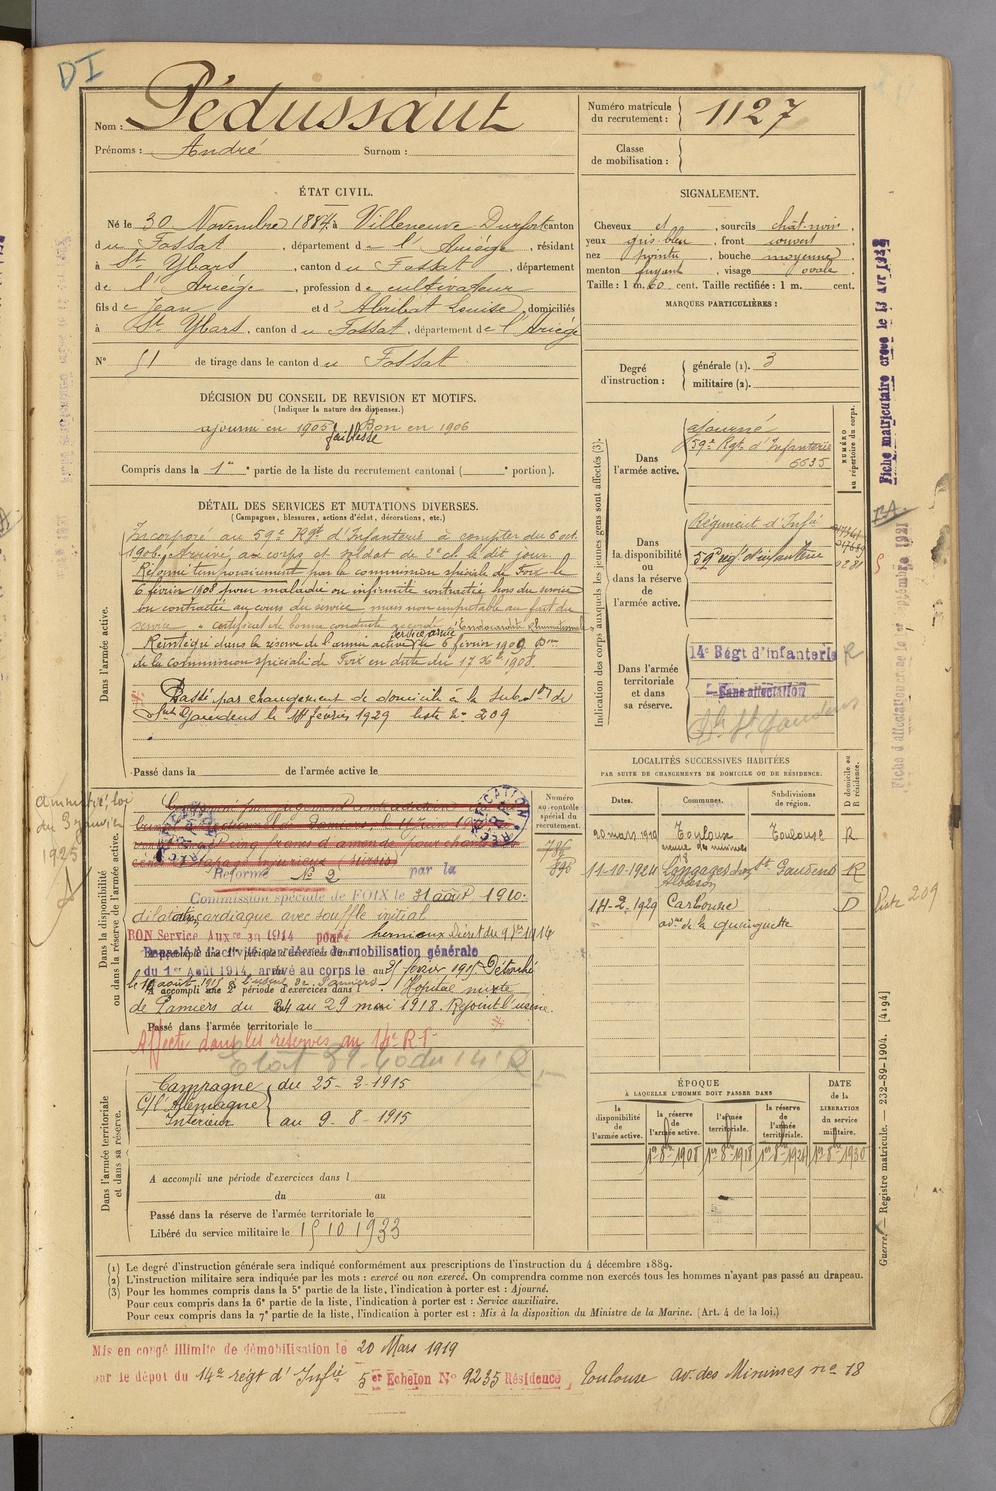 DI
Nom : Pédussaut
Prénoms : André Surnom :
Numéro matricule du recrutement : 1127
Classe de mobilisation :
ÉTAT CIVIL.
Né le 30 Novembre 1884, à Villeneuve Durfort canton
du Fossat, département de l'Ariège, résidant
à St Ybars, canton du Fossat, département
de l'Ariège, profession de cultivateur
fils de Jean et d'Abribat Louise, domiciliés
à St Ybars, canton du Fossat, département de l'Ariège
N° 51 de tirage dans le canton du Fossat
SIGNALEMENT.
Cheveux et, sourcils chât-noirs,
yeux gris bleu, front couvert
nez pointu, bouche moyenne,
menton fuyant, visage ovale
Taille : 1 m. 60 cent. Taille rectifiée : 1 m. cent.
MARQUES PARTICULIÈRES :
Degré d'instruction : générale (1). 3
militaire (2).
DÉCISION DU CONSEIL DE REVISION ET MOTIFS.
(Indiquer la nature des dispenses.)
ajourné en 1905 faiblesse Bon en 1906
Compris dans la 1re partie de la liste du recrutement cantonal ( portion).
DÉTAIL DES SERVICES ET MUTATIONS DIVERSES.
(Campagnes, blessures, actions d'éclat, décorations, etc.)
Dans l'armée active.
Incorporé au 59e Rgt d'Infanterie à compter du 6 oct.
1906, Arrivé au corps et soldat de 2e cl le dit jour.
Réformé temporairement par la commission spéciale de Foix le
6 février 1908 pour maladie ou infirmité contractée hors du service
ou contractée au cours du service, mais non imputable au fait du
service. certificat de bonne conduite accordé "Endocardite Rhumatismale"
Réintégré dans la réserve de l'armée active service armé le 6 février 1909 Don
de la commission spéciale de Foix en date du 17 Xbre 1908.
Passé par changement de domicile à la Subdon de
Saint Gaudens le 14 février 1929 liste n° 209
Passé dans la de l'armée active le
Indication des corps auxquels les jeunes gens sont affectés (3).
NUMÉRO au répertoire du corps.
Dans l'armée active.
ajourné
59e Rgt d'Infanterie
6635
Dans la disponibilité ou dans la réserve de l'armée active.
Régiment d'Infie
59 régt d'infanterie
Dans l'armée territoriale et dans sa réserve.
14e Régt d'infanterie R
Sans affectation
St Gaudens
LOCALITÉS SUCCESSIVES HABITÉES
PAR SUITE DE CHANGEMENTS DE DOMICILE OU DE RÉSIDENCE.
Dates. Communes. Subdivisions de région. D domicile ou R résidence.
20 mars 1919 Toulouse avenue des minimes 18 Toulouse R
11-10-1924 St Gaudens R
14-2-1929 Carbonne D
Liste 209
Dans la disponibilité ou dans la réserve de l'armée active.
Numéro au contrôle spécial du recrutement.
amnistié, loi
du 3 janvier
1925
Réformé N° 2 par la
Commission spéciale de FOIX le 31 août 1910:
dilatation cardiaque avec souffle initial
BON Service Auxre en 1914 hernieux
Rappelé à l'activité par décret de mobilisation générale
du 1er Août 1914, arrivé au corps le 25 février 1915 Détaché
A accompli une 2e période d'exercices dans l Hopital mixte
de Pamiers du 24 au 29 mai 1918. Rejoint l'usine.
Passé dans l'armée territoriale le
Affecté dans les réserves au 14e R.I.
Dans l'armée territoriale et dans sa réserve.
Campagne c/ l'Allemagne
Intérieur
du 25-2-1915
au 9-8-1915
A accompli une période d'exercices dans l
du au
Passé dans la réserve de l'armée territoriale le
Libéré du service militaire le 15 10 1933
ÉPOQUE
À LAQUELLE L'HOMME DOIT PASSER DANS
DATE de la LIBÉRATION du service militaire.
la disponibilité de l'armée active. la réserve de l'armée active. l'armée territoriale. la réserve de l'armée territoriale.
1er 8bre 1908 1er 8bre 1918 1er 8bre 1924 1er 8bre 1930
(1) Le degré d'instruction générale sera indiqué conformément aux prescriptions de l'instruction du 4 décembre 1889.
(2) L'instruction militaire sera indiquée par les mots : exercé ou non exercé. On comprendra comme non exercés tous les hommes n'ayant pas passé au drapeau.
(3) Pour les hommes compris dans la 5e partie de la liste, l'indication à porter est : Ajourné.
Pour ceux compris dans la 6e partie de la liste, l'indication à porter est : Service auxiliaire.
Pour ceux compris dans la 7e partie de la liste, l'indication à porter est : Mis à la disposition du Ministre de la Marine. (Art. 4 de la loi.)
Mis en congé illimité de démobilisation le 20 Mars 1919
par le dépôt du 14e régt d'Infie 5er Echelon N° 9235 Résidence, Toulouse av. des Minimes no 18
Fiche matriculaire créée le 13 AVR 1938
Fiche d'affectation créée le 1er septembre 1921
Guerre. — Registre matricule. — 232-89-1904. [4194]